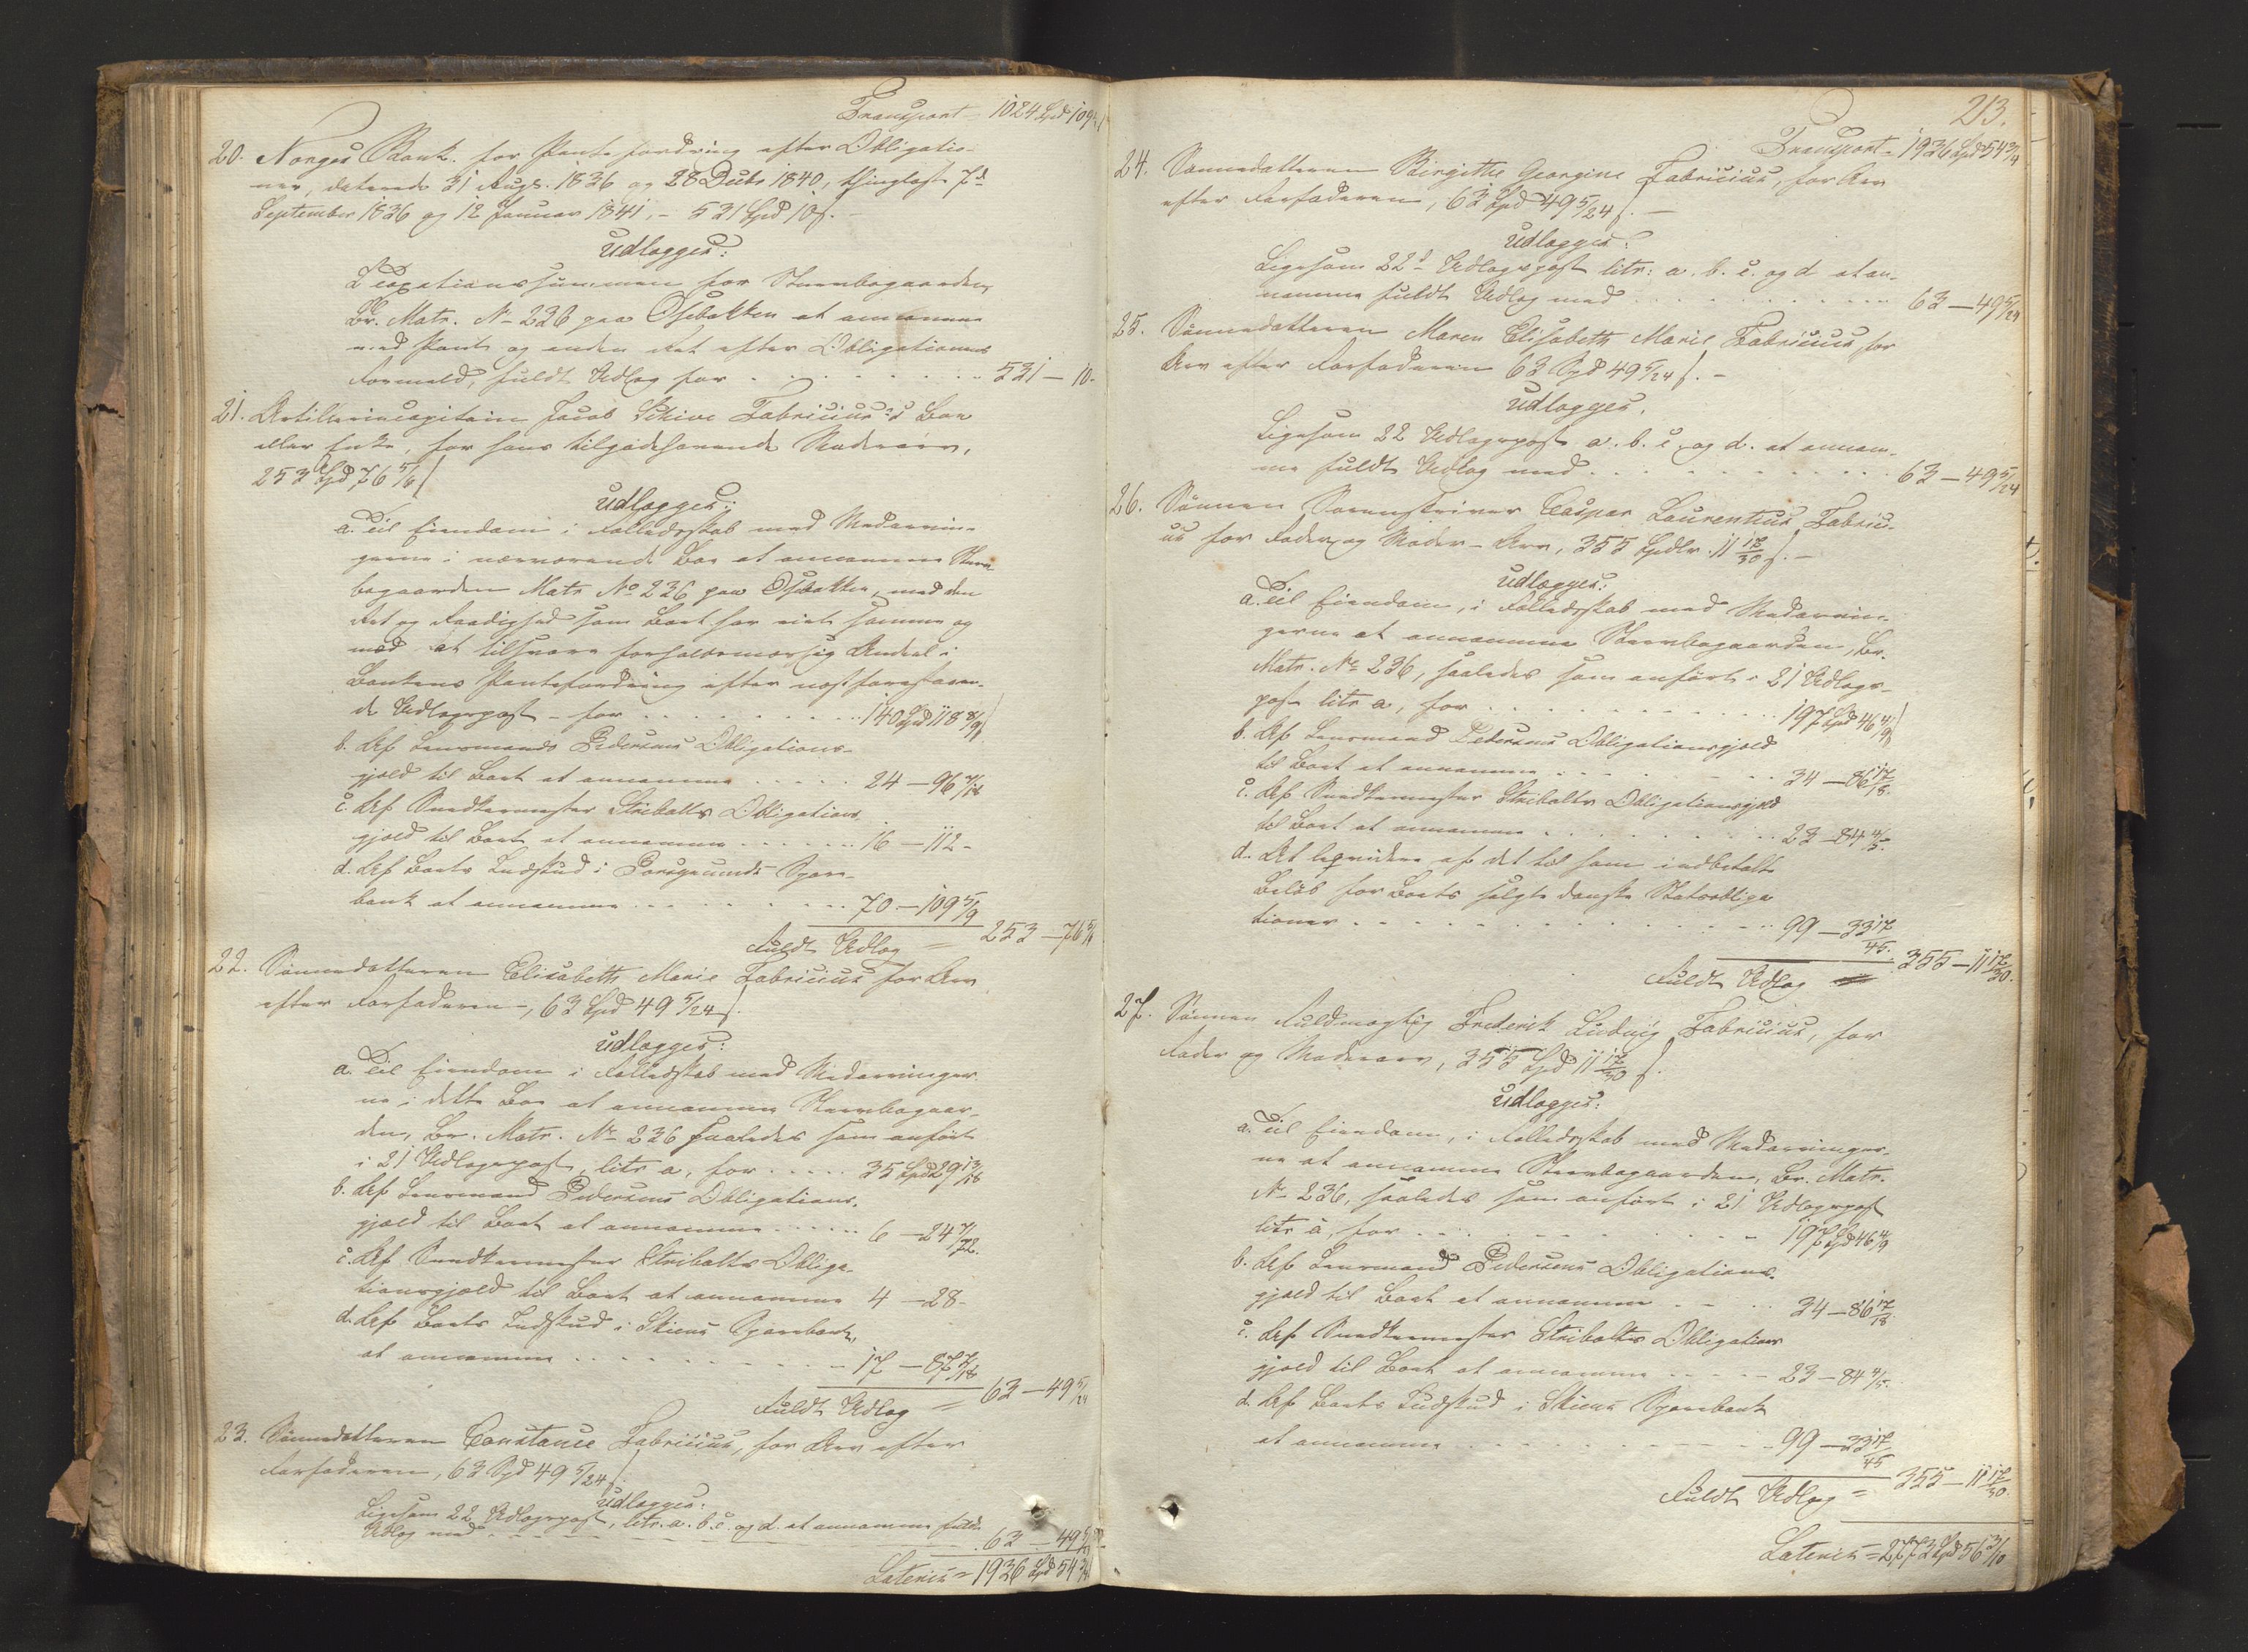 Transport - 1024 Spd 109
20. Norges Bank. for Pantefordring efter Obligatio-
ner, daterede 31 Augs. 1836 og 28 Decbr 1840, thinglæste 7d
September 1836 og 12 Januar 1841, - 531 Spd 10 s. -
udlægges:
I Taxationssummen for Stervbogaarden,
Br. Matr. No 236 paa Osebakken at annamme
med Pant og anden Ret efter Obligationens
Formeld, fuldt Udlæg for . . . . . . 531 - 10.
21. Artillericapitain Jacob Schive Fabricius's Boe
eller Enke, for hans tilgodehavende Mødrearv,
253 Spd 76 5/6 s
udlægges:
a. Til Eiendom i Fælledsskab med Medarvin-
gerne i nærværende Boe at annamme Sterv-
bogaarden Matr No 236 paa Osebakken, med den
Ret og Raadighed som Boet har eiet samme og
mod at tilsvare forholdsmæssig Andeel i
Bankens Pantefordring efter næstforestaaen-
de Udlægspost - for . . . . . 140 Spd 118 8/9 s
b. Af Lensmand Pedersens Obligations-
gjæld til Boet at annamme . . . . . 24 - 96 7/18
c. Af Snedkermester Stribolts Obligations-
gjæld til Boet at annamme . . . . . 16 - 112 -
d. Af Boets Indskud i Porsgrunds Spare-
bank at annamme . . . . . 70 - 109 5/9
Fuldt Udlæg = 253 - 76 5/6
22. Sønnedatteren Elisabeth Marie Fabricius for Arv
efter Farfaderen -, 63 Spd 49 5/24 s.
udlægges:
a. Til Eiendom i Fælledsskab med Medarvinger-
ne i dette Boe at annamme Stervbogaar-
den, Br. Matr. No 236 saaledes som anført
i 21 Udlægspost, litr a, for . . . . . 35 Spd 29 13/18
b. Af Lensmand Pedersens Obligations-
gjæld til Boet at annamme . . . . . 6 - 24 7/72.
c. Af Snedkermester Stribolts Obliga-
tionsgjæld til Boet at annamme 4 - 28 -
d. Af Boets Indskud i Skiens Sparebank,
at annamme . . . . . 17 - 87 7/18
Fuldt Udlæg = 63 - 49 5/24
23. Sønnedatteren Constance Fabricius, for Arv efter
Farfaderen, 63 Spd 49 5/24 s.
udlægges:
Ligesom 22 Udlægspost, litr. a. b. c. og d. at annamme fuldt
Udlæg med . . . . . 63 - 49 5/24
Lateris = 1936 Spd 54 3/4
213.
Transport - 1936 Spd 54 3/4
24. Sønnedatteren Birgitte Georgine Fabricius, for Arv
efter Farfaderen, 63 Spd 49 5/24 s. -
udlægges:
Ligesom 22d Udlægspost litr: a. b. c. og d at an-
namme fuldt Udlæg med . . . . . 63 - 49 5/24
25. Sønnedatteren Maren Elisabeth Marie Fabricius, for
Arv efter Farfaderen 63 Spd 49 5/24 s. -
udlægges.
Ligesom 22 Udlægspost a. b. c. og d. at annam-
me fuldt Udlæg med . . . . . 63 - 49 5/24
26. Sønnen Sorenskriver Caspar Laurentius Fabrici-
us for Fader og Moder-Arv, 355 Spdlr. 11 17/30 s. -
udlægges:
a. Til Eiendom, i Fælledsskab med Medarvin-
gerne at annamme Stervbogaarden, Br.
Matr. No 236, saaledes som anført i 21 Udlægs-
post litr a, for . . . . . 197 Spd 46 4/9 s
b. Af Lensmand Pedersens Obligationsgjæld
til Boet at annamme . . . . . 34 - 86 17/18.
c. Af Snedkermester Stribolts Obligationsgjæld
til Boet at annamme . . . . . 23 - 84 4/5.
d. At liqvidere af det til ham indbetalte
Beløb for Boets solgte danske Statsobliga-
tioner . . . . . 99 - 33 17/45.
Fuldt Udlæg 355 - 11 17/30.
27. Sønnen Fuldmægtig Frederik Ludvig Fabricius, for
Fader og Moderarv, 355 Spd 11 17/30 s.
udlægges:
a. Til Eiendom, i Fælledsskab med Medarvinger-
ne at annamme Stervbogaarden, Br. Matr.
No 236, saaledes som anført i 21 Udlægspost
litr a, for . . . . . 197 Spd 46 4/9
b. Af Lensmand Pedersens Obligations-
gjæld til Boet at annamme . . . . . 34 - 86 17/18.
c. Af Snedkermester Stribolts Obligations
gjæld til Boet at annamme . . . . . 23 - 84 4/5.
d. Af Boets Indskud i Skiens Sparebank
at annamme . . . . . 99 - 33 17/45
Fuldt Udlæg = 355 - 11 17/30.
Lateris = 2773 Spd 56 3/10